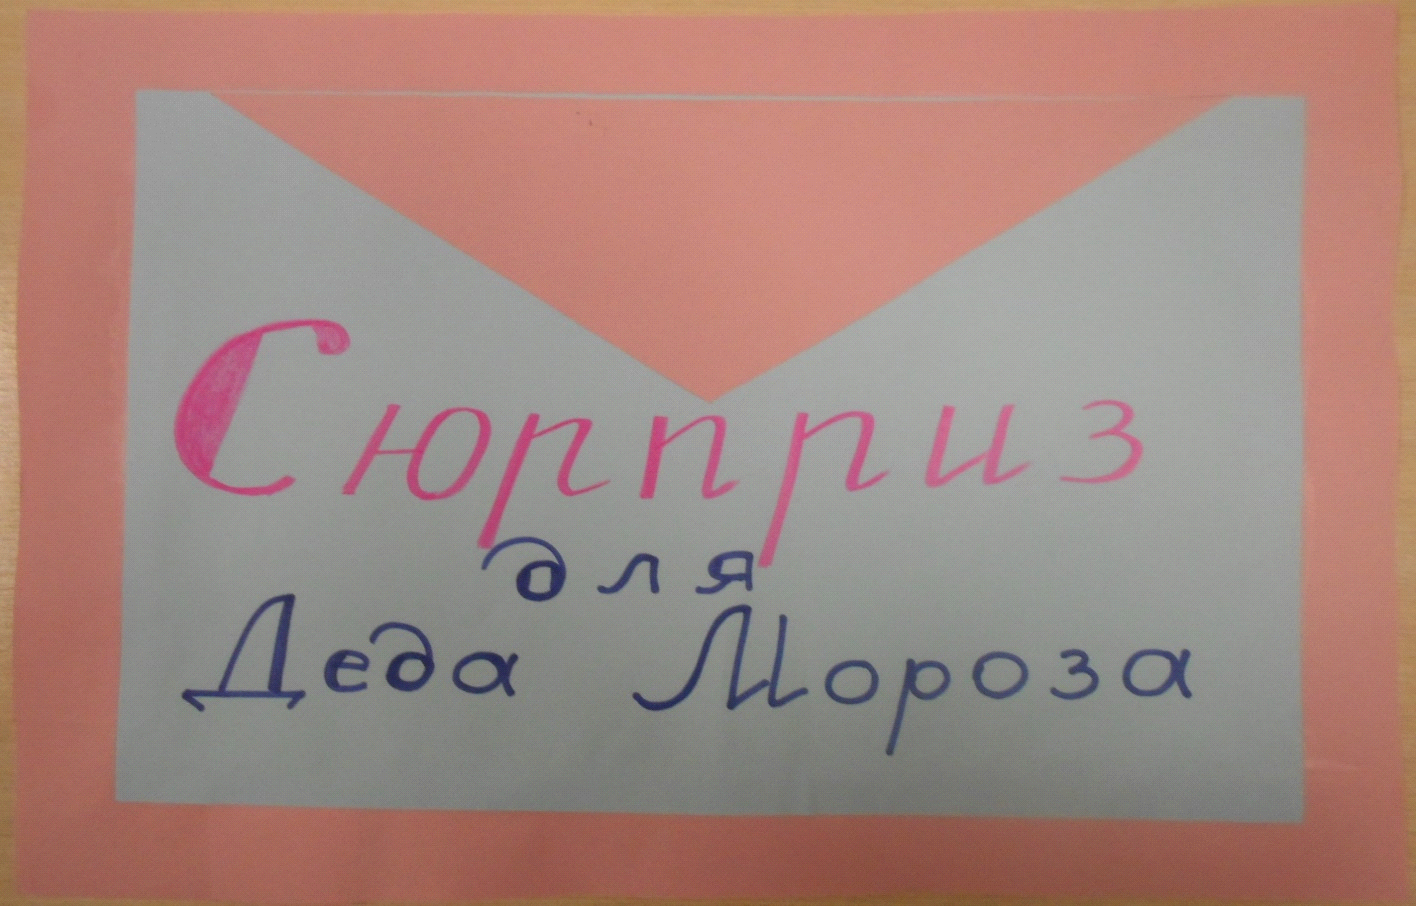 Сюрприз
для
Деда Мороза